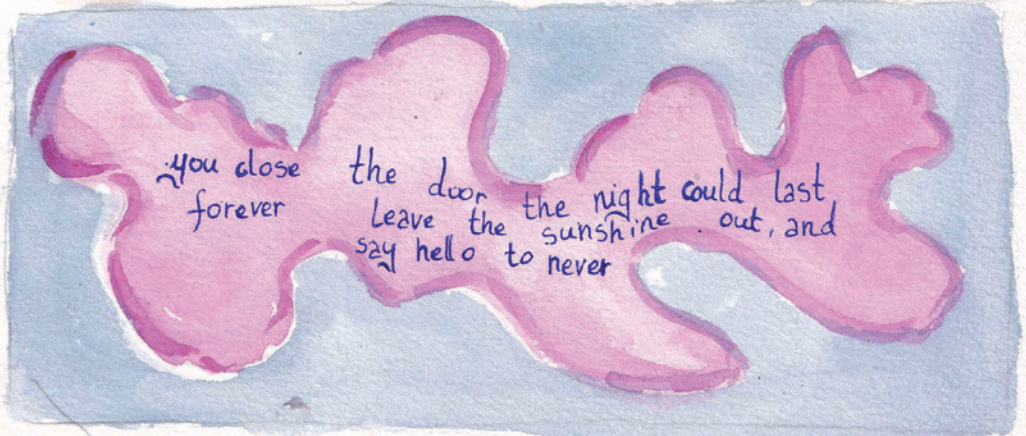 you close the door the night could last
forever Leave the sunshine out, and
say hello to never